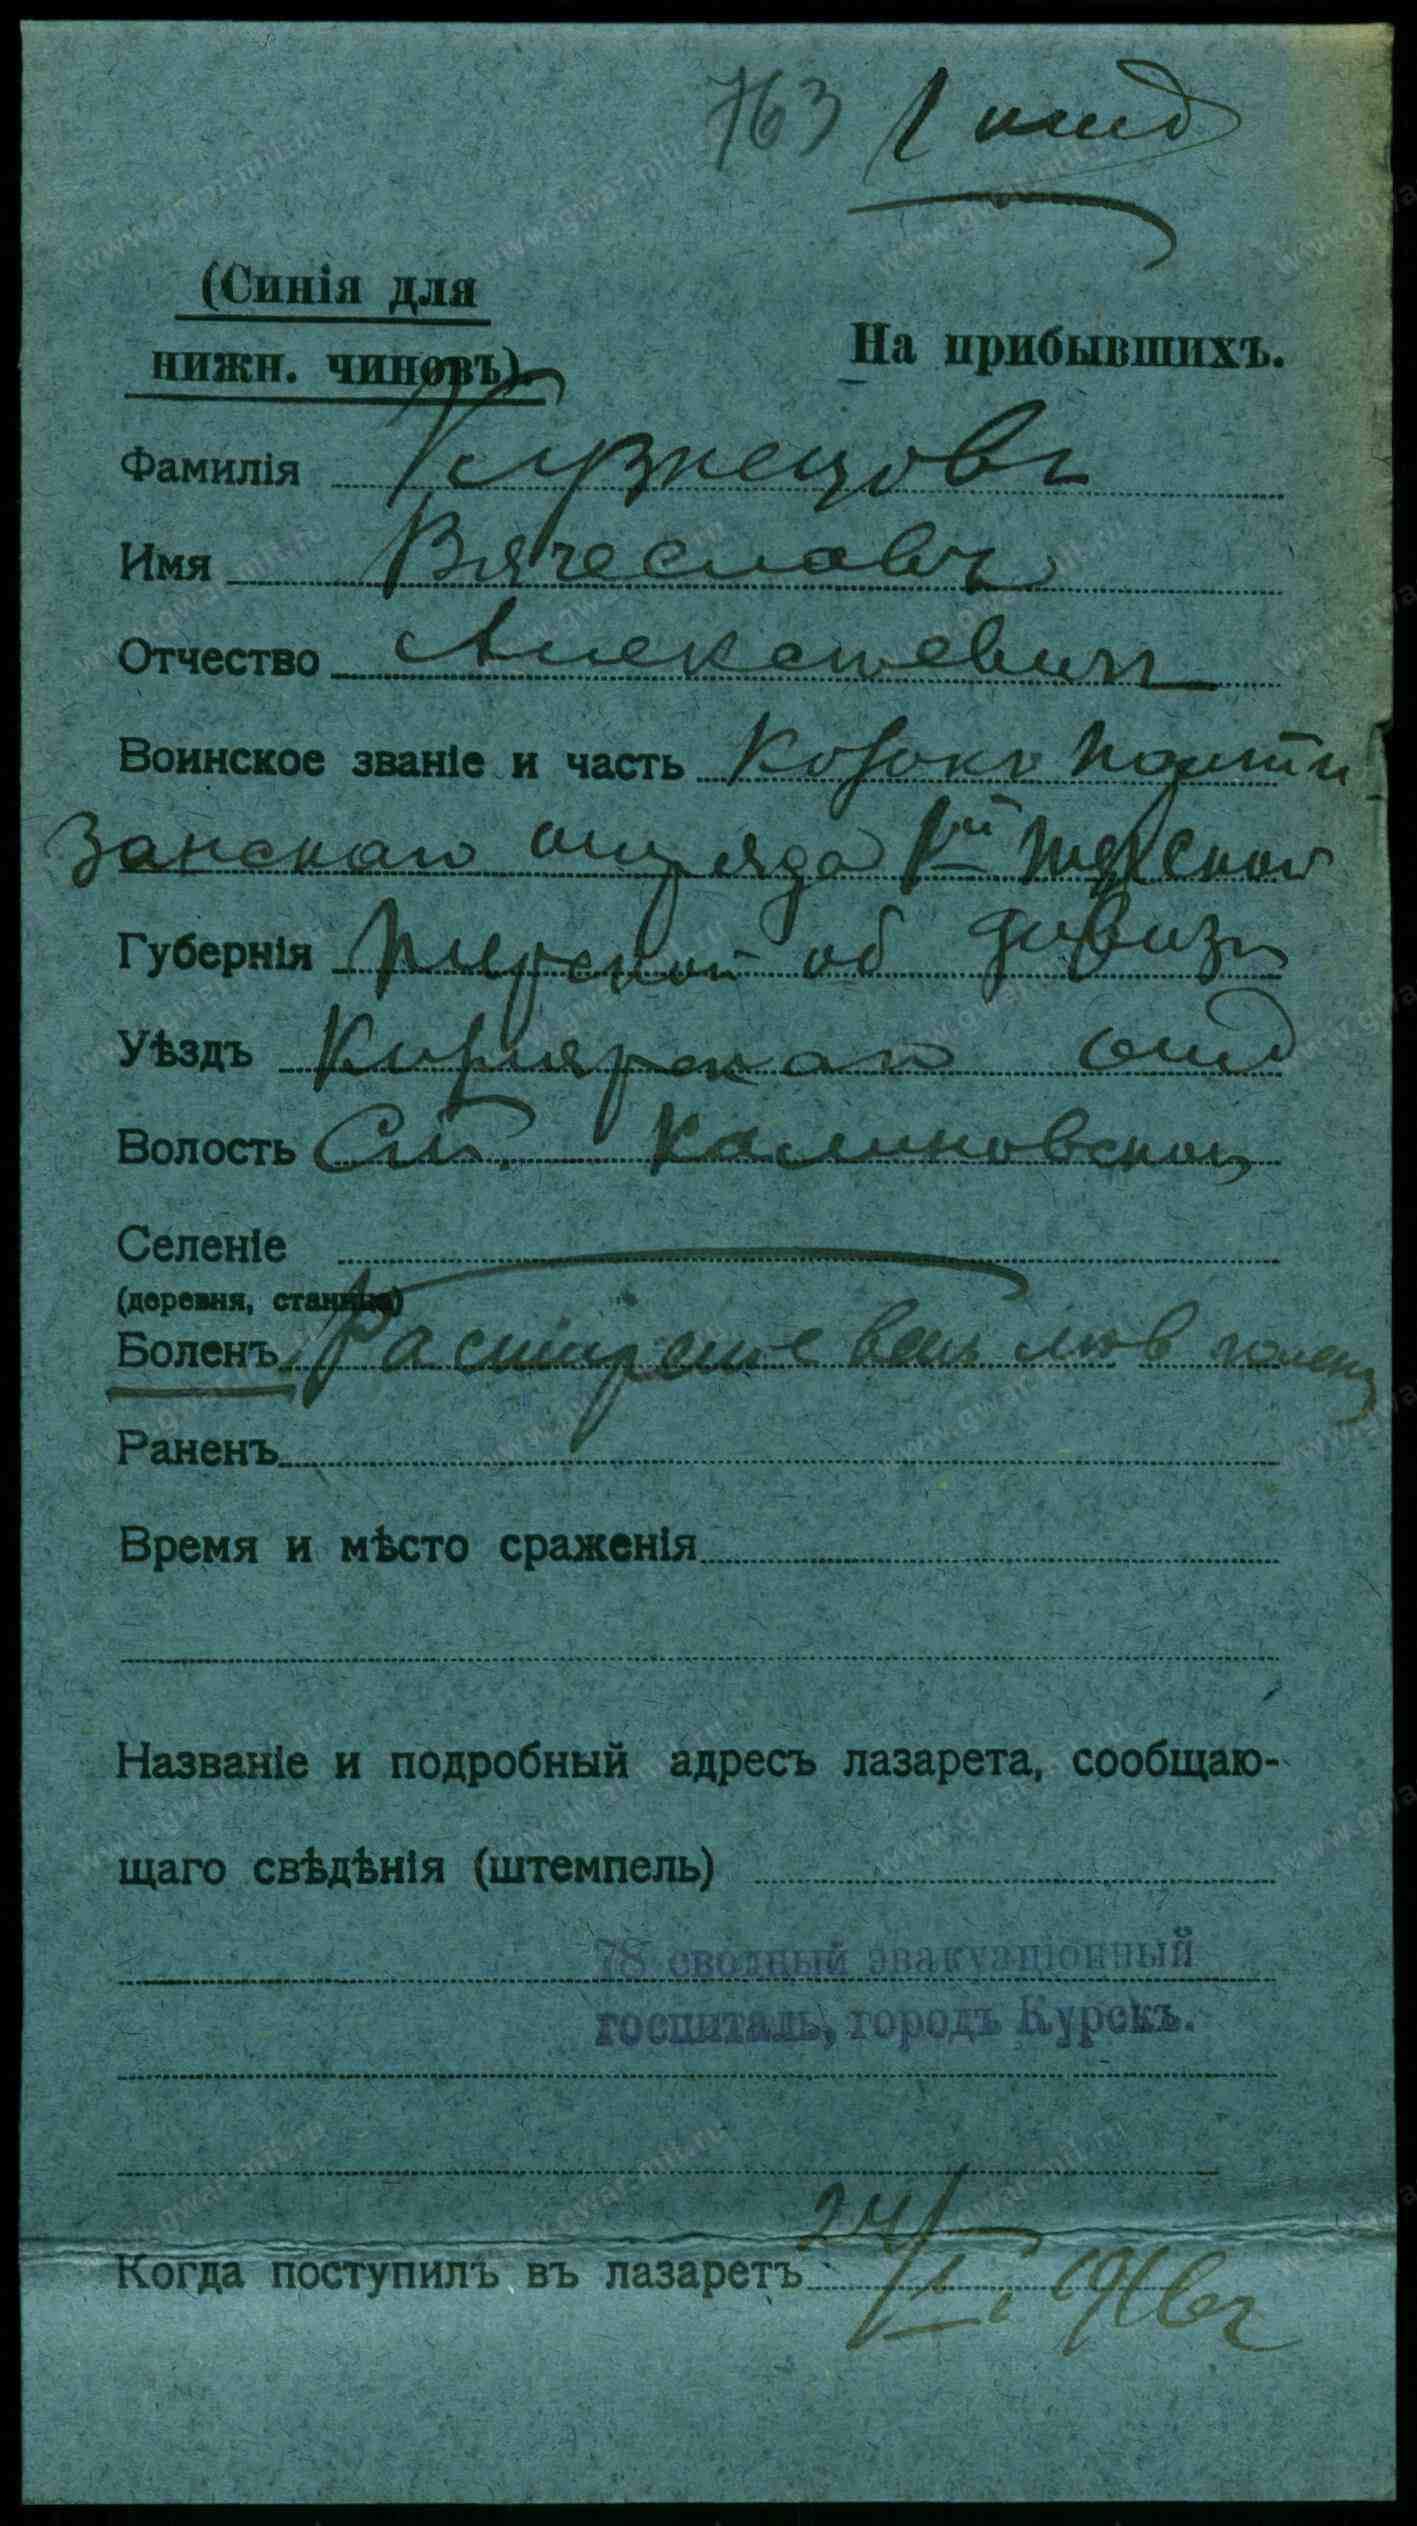 763 1 отд
(Синія для
нижн. чиновъ).
На прибывшихъ.
Фамилія Кузнецовъ
Имя Вячеславъ
Отчество Алексѣевичъ
Воинское званіе и часть Козокъ Парти
занскаго отряда 1ой Терской
Губернія Терской об дивизи
Уѣздъ Кизлярскаго отд
Волость Ст. Калиновской
Селеніе
(деревня, станица)
Боленъ Расширение вень голени
Раненъ
Время и мѣсто сраженія
Названіе и подробный адресъ лазарета, сообщаю-
щаго свѣдѣнія (штемпель)
78 сводный эвакуаціонный
госпиталь, городъ Курскъ.
Когда поступилъ въ лазаретъ 24/ 1916 г